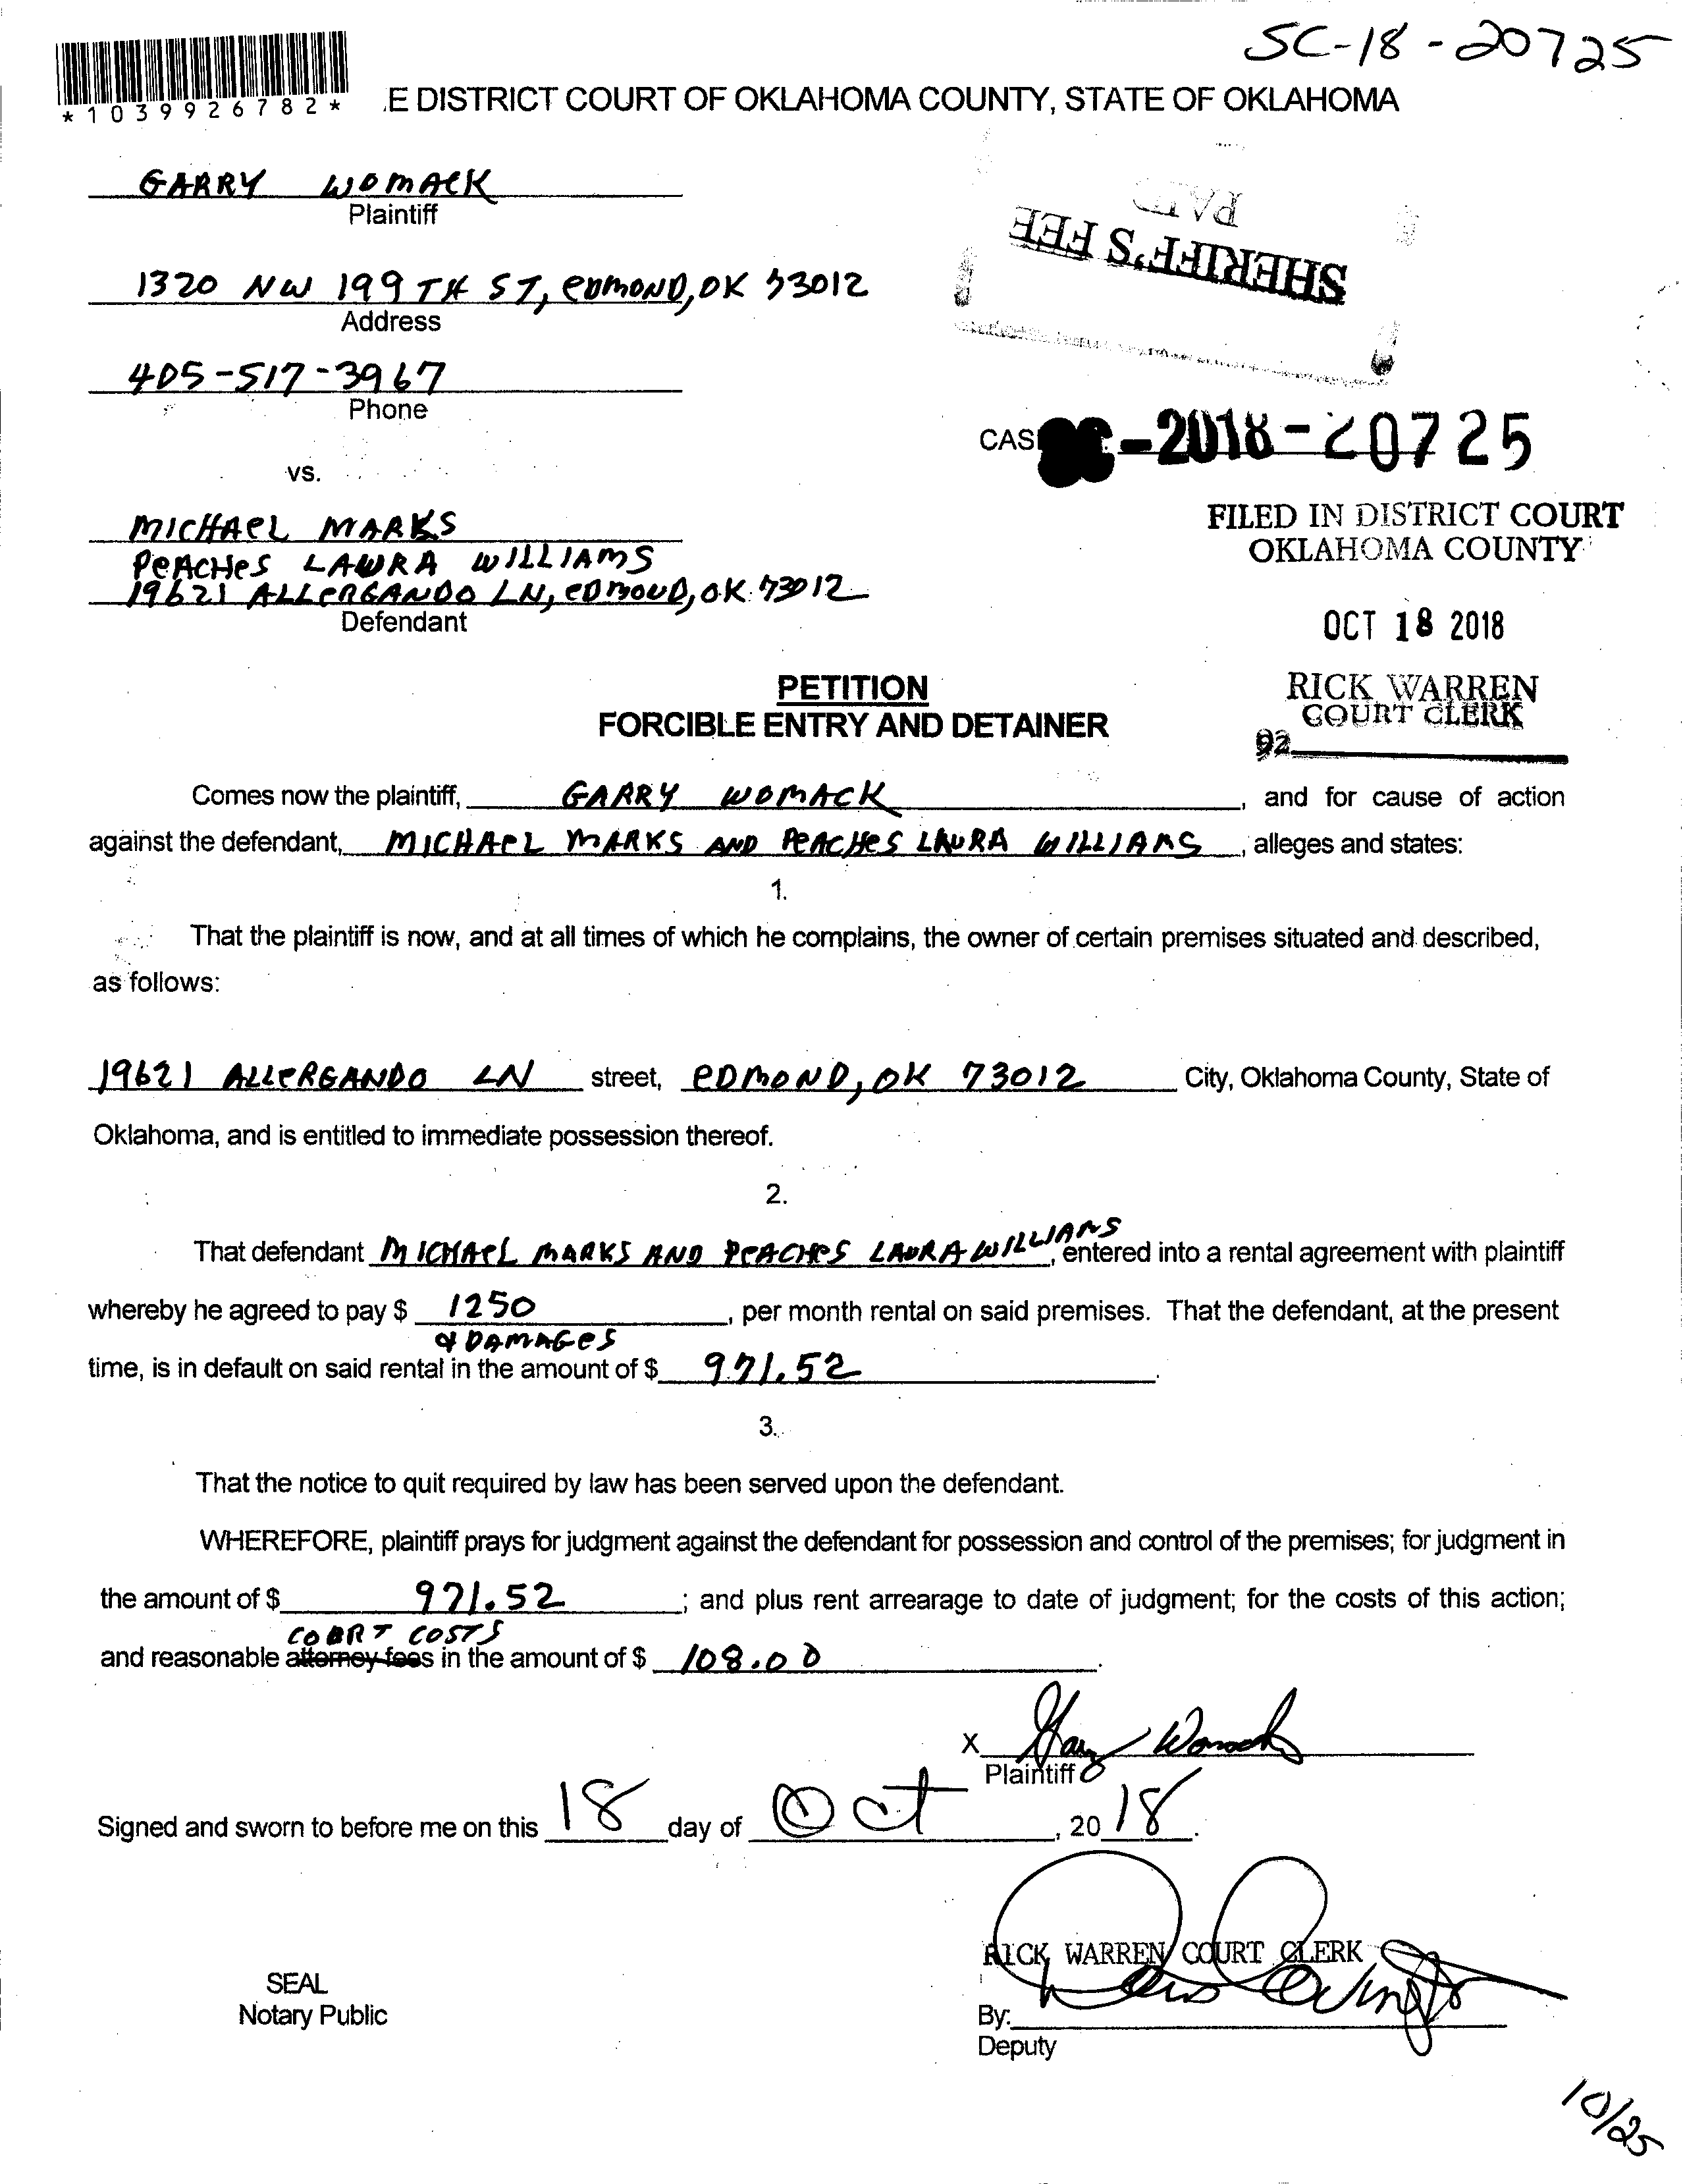 SC-18-20725
*1039926782*
.E DISTRICT COURT OF OKLAHOMA COUNTY, STATE OF OKLAHOMA
GARRY WOMACK
Plaintiff
PAID
SHERIFF'S FEE
1320 NW 199TH ST, EDMOND, OK 73012
Address
405-517-3967
Phone
CAS -2018-20725
vs.
FILED IN DISTRICT COURT
OKLAHOMA COUNTY
MICHAEL MARKS
PEACHES LAURA WILLIAMS
19621 ALLERGANDO LN, EDMOND, OK 73012
Defendant
OCT 18 2018
RICK WARREN
COURT CLERK
92
PETITION
FORCIBLE ENTRY AND DETAINER
Comes now the plaintiff, GARRY WOMACK, and for cause of action
against the defendant, MICHAEL MARKS AND PEACHES LAURA WILLIAMS, alleges and states:
1.
That the plaintiff is now, and at all times of which he complains, the owner of certain premises situated and described,
as follows:
19621 ALLERGANDO LN street, EDMOND, OK 73012 City, Oklahoma County, State of
Oklahoma, and is entitled to immediate possession thereof.
2.
That defendant MICHAEL MARKS AND PEACHES LAURA WILLIAMS, entered into a rental agreement with plaintiff
whereby he agreed to pay $ 1250, per month rental on said premises. That the defendant, at the present
& DAMAGES
time, is in default on said rental in the amount of $ 971.52.
3.
That the notice to quit required by law has been served upon the defendant.
WHEREFORE, plaintiff prays for judgment against the defendant for possession and control of the premises; for judgment in
the amount of $ 971.52; and plus rent arrearage to date of judgment; for the costs of this action;
COURT COSTS
and reasonable attorney fees in the amount of $ 108.00.
X Garry Womack
Plaintiff
Signed and sworn to before me on this 18 day of Oct, 20 18.
RICK WARREN COURT CLERK
SEAL
Notary Public
By:
Deputy
10/25